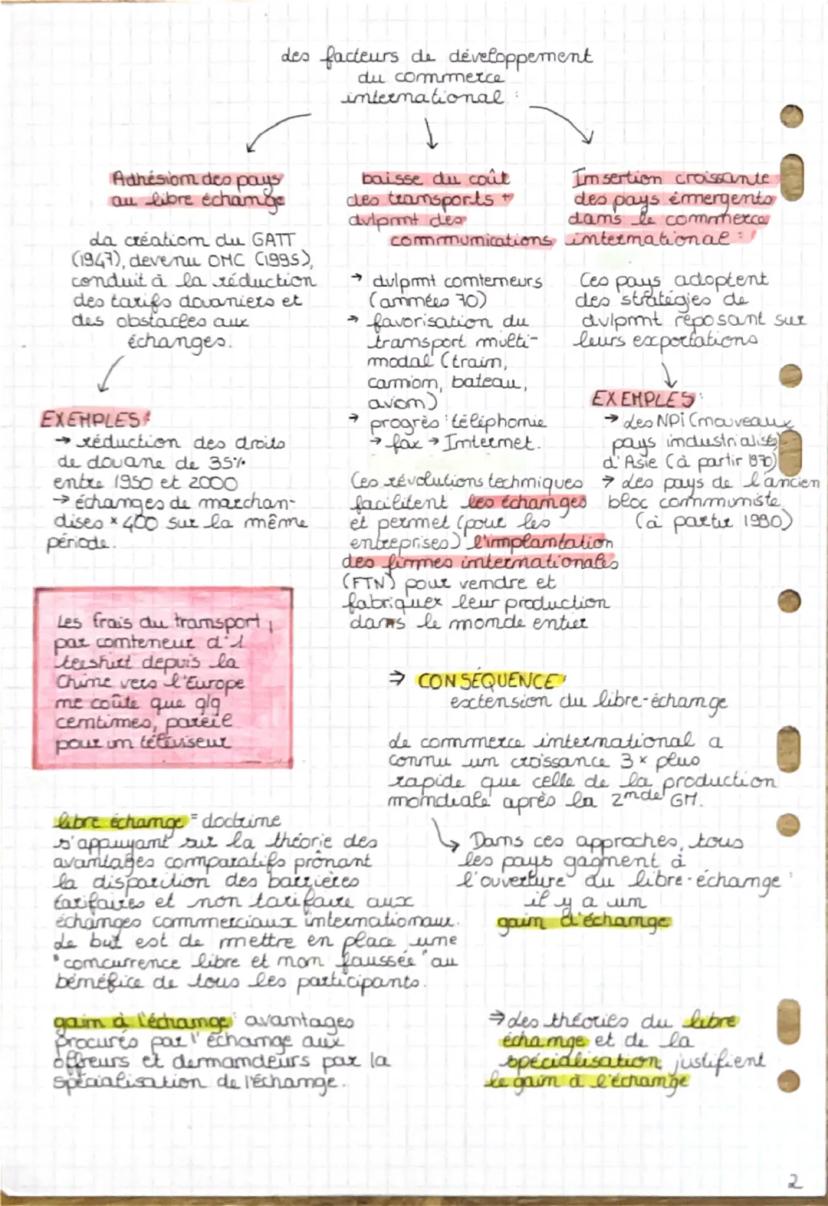 des facteurs de développement
du commerce
international :
Adhésion des pays
au libre échange
La création du GATT
(1947), devenu OMC (1995),
conduit à la réduction
des tarifs douaniers et
des obstacles aux
échanges.
EXEMPLES :
→ réduction des droits
de douane de 35%
entre 1950 et 2000
→ échanges de marchan-
dises × 400 sur la même
période.
baisse du coût
des transports +
dvlpmt des
communications
→ dvlpmt conteneurs
(années 70)
→ favorisation du
transport multi-
modal (train,
camion, bateau,
avion)
→ progrès : téléphonie
→ fax → Internet.
Ces révolutions techniques
facilitent les échanges
et permet (pour les
entreprises) l'implantation
des firmes internationales
(FTN) pour vendre et
fabriquer leur production
dans le monde entier
Insertion croissante
des pays émergents
dans le commerce
international :
Ces pays adoptent
des stratégies de
dvlpmt reposant sur
leurs exportations
EXEMPLES :
→ des NPi (nouveaux
pays industrialisés)
d'Asie (à partir 1970)
→ des pays de l'ancien
bloc communiste
(à partir 1990)
Les frais du transport,
par conteneur d'1
teeshirt depuis la
Chine vers l'Europe
ne coûte que qlq
centimes, pareil
pour un téléviseur
⇒ CONSÉQUENCE :
extension du libre-échange
Le commerce international a
connu un croissance 3 × plus
rapide que celle de la production
mondiale après la 2nde GM.
↳ Dans ces approches, tous
les pays gagnent à
l'ouverture du libre-échange :
il y a un
gain d'échange
libre échange = doctrine
s'appuyant sur la théorie des
avantages comparatifs prônant
la disparition des barrières
tarifaires et non tarifaire aux
échanges commerciaux internationaux.
Le but est de mettre en place une
"concurrence libre et non faussée" au
bénéfice de tous les participants.
gain à l'échange : avantages
procurés par l'échange aux
offreurs et dermandeurs par la
spécialisation de l'échange.
⇒ des théories du libre
échange et de la
spécialisation justifient
le gain à l'échange
2